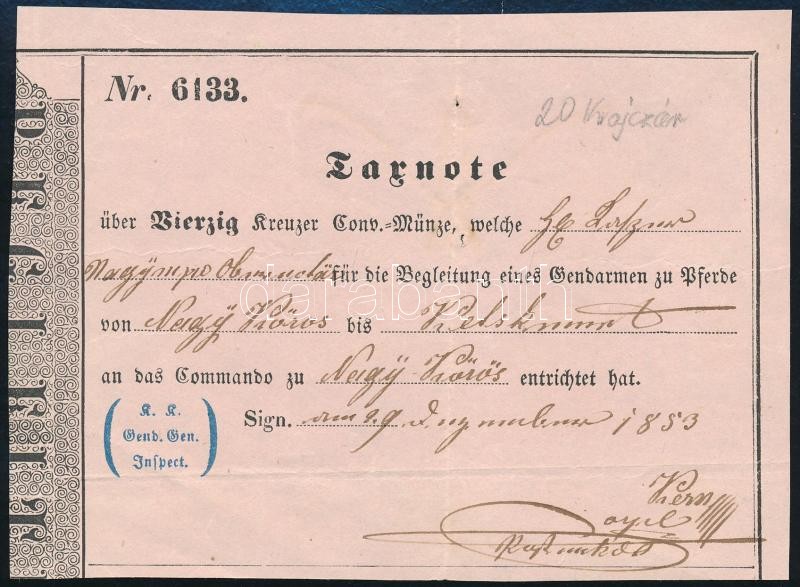 Nr. 6133.
20 Krajczár
Taxnote
über Vierzig Kreuzer Conv.=Münze, welche
für die Begleitung eines Gendarmen zu Pferde
von Nagÿ Körös bis Ketskemet
an das Commando zu Nagÿ Körös entrichtet hat.
K. K.
Gend. Gen.
Inspect.
Sign. am 29 Dezember 1853
darabanth